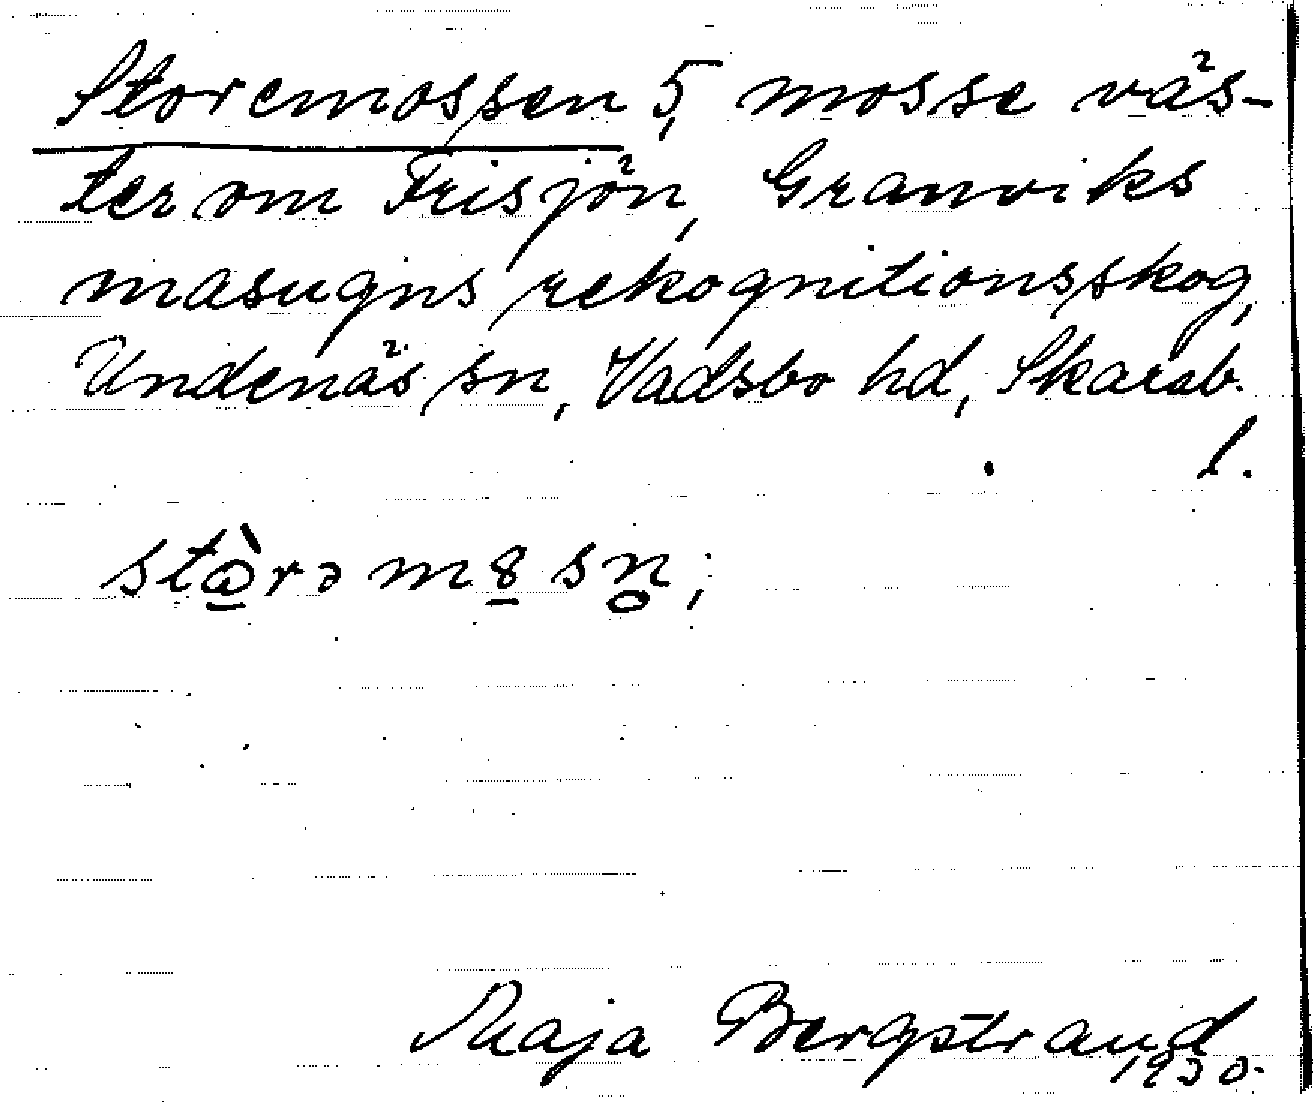 Storemossen 5, mosse väs-
ter om Frisjön, Granviks
masugns rekognitionsskog,
Undenäs sn, Vadsbo hd, Skarab.
l.
Maja Bergstrand
1930.